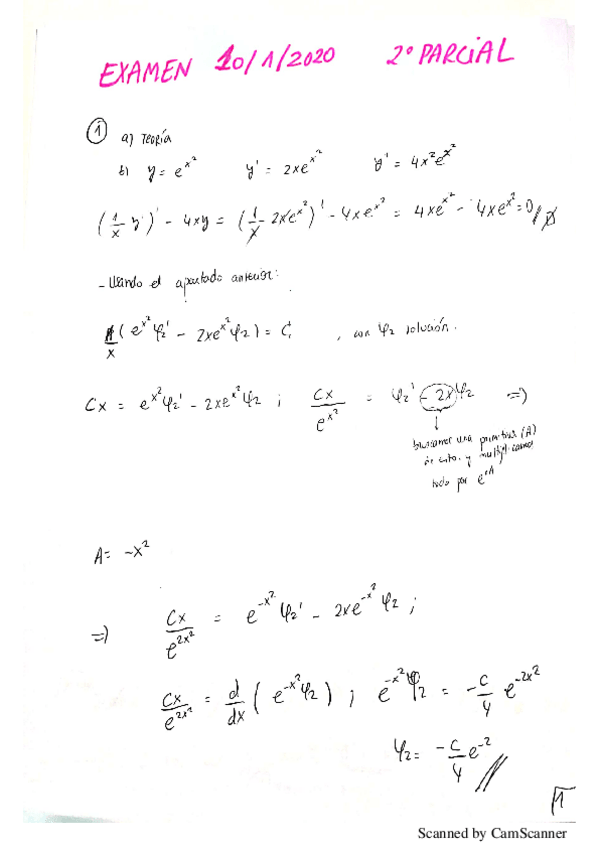 EXAMEN 10/1/2020 2º PARCIAL
① a) Teoría
b) y = e^{x^2} y' = 2xe^{x^2} y' = 4x^2e^{x^2}
(1/x y')' - 4xy = (1/x 2xe^{x^2})' - 4xe^{x^2} = 4xe^{x^2} - 4xe^{x^2} = 0//
- Usando el apartado anterior:
1/x (e^{x^2}φ_2' - 2xe^{x^2}φ_2) = C, con φ_2 solución.
Cx = e^{x^2}φ_2' - 2xe^{x^2}φ_2 ; Cx/e^{x^2} = φ_2' - 2xφ_2 =>
↓
buscamos una primitiva (A)
de esto y
todo por e^A
A = -x^2
=> Cx/e^{2x^2} = e^{-x^2}φ_2' - 2xe^{-x^2}φ_2 ;
Cx/e^{2x^2} = d/dx (e^{-x^2}φ_2) ; e^{-x^2}φ_2 = -C/4 e^{-2x^2}
φ_2 = -C/4 e^{-2}//
1
Scanned by CamScanner